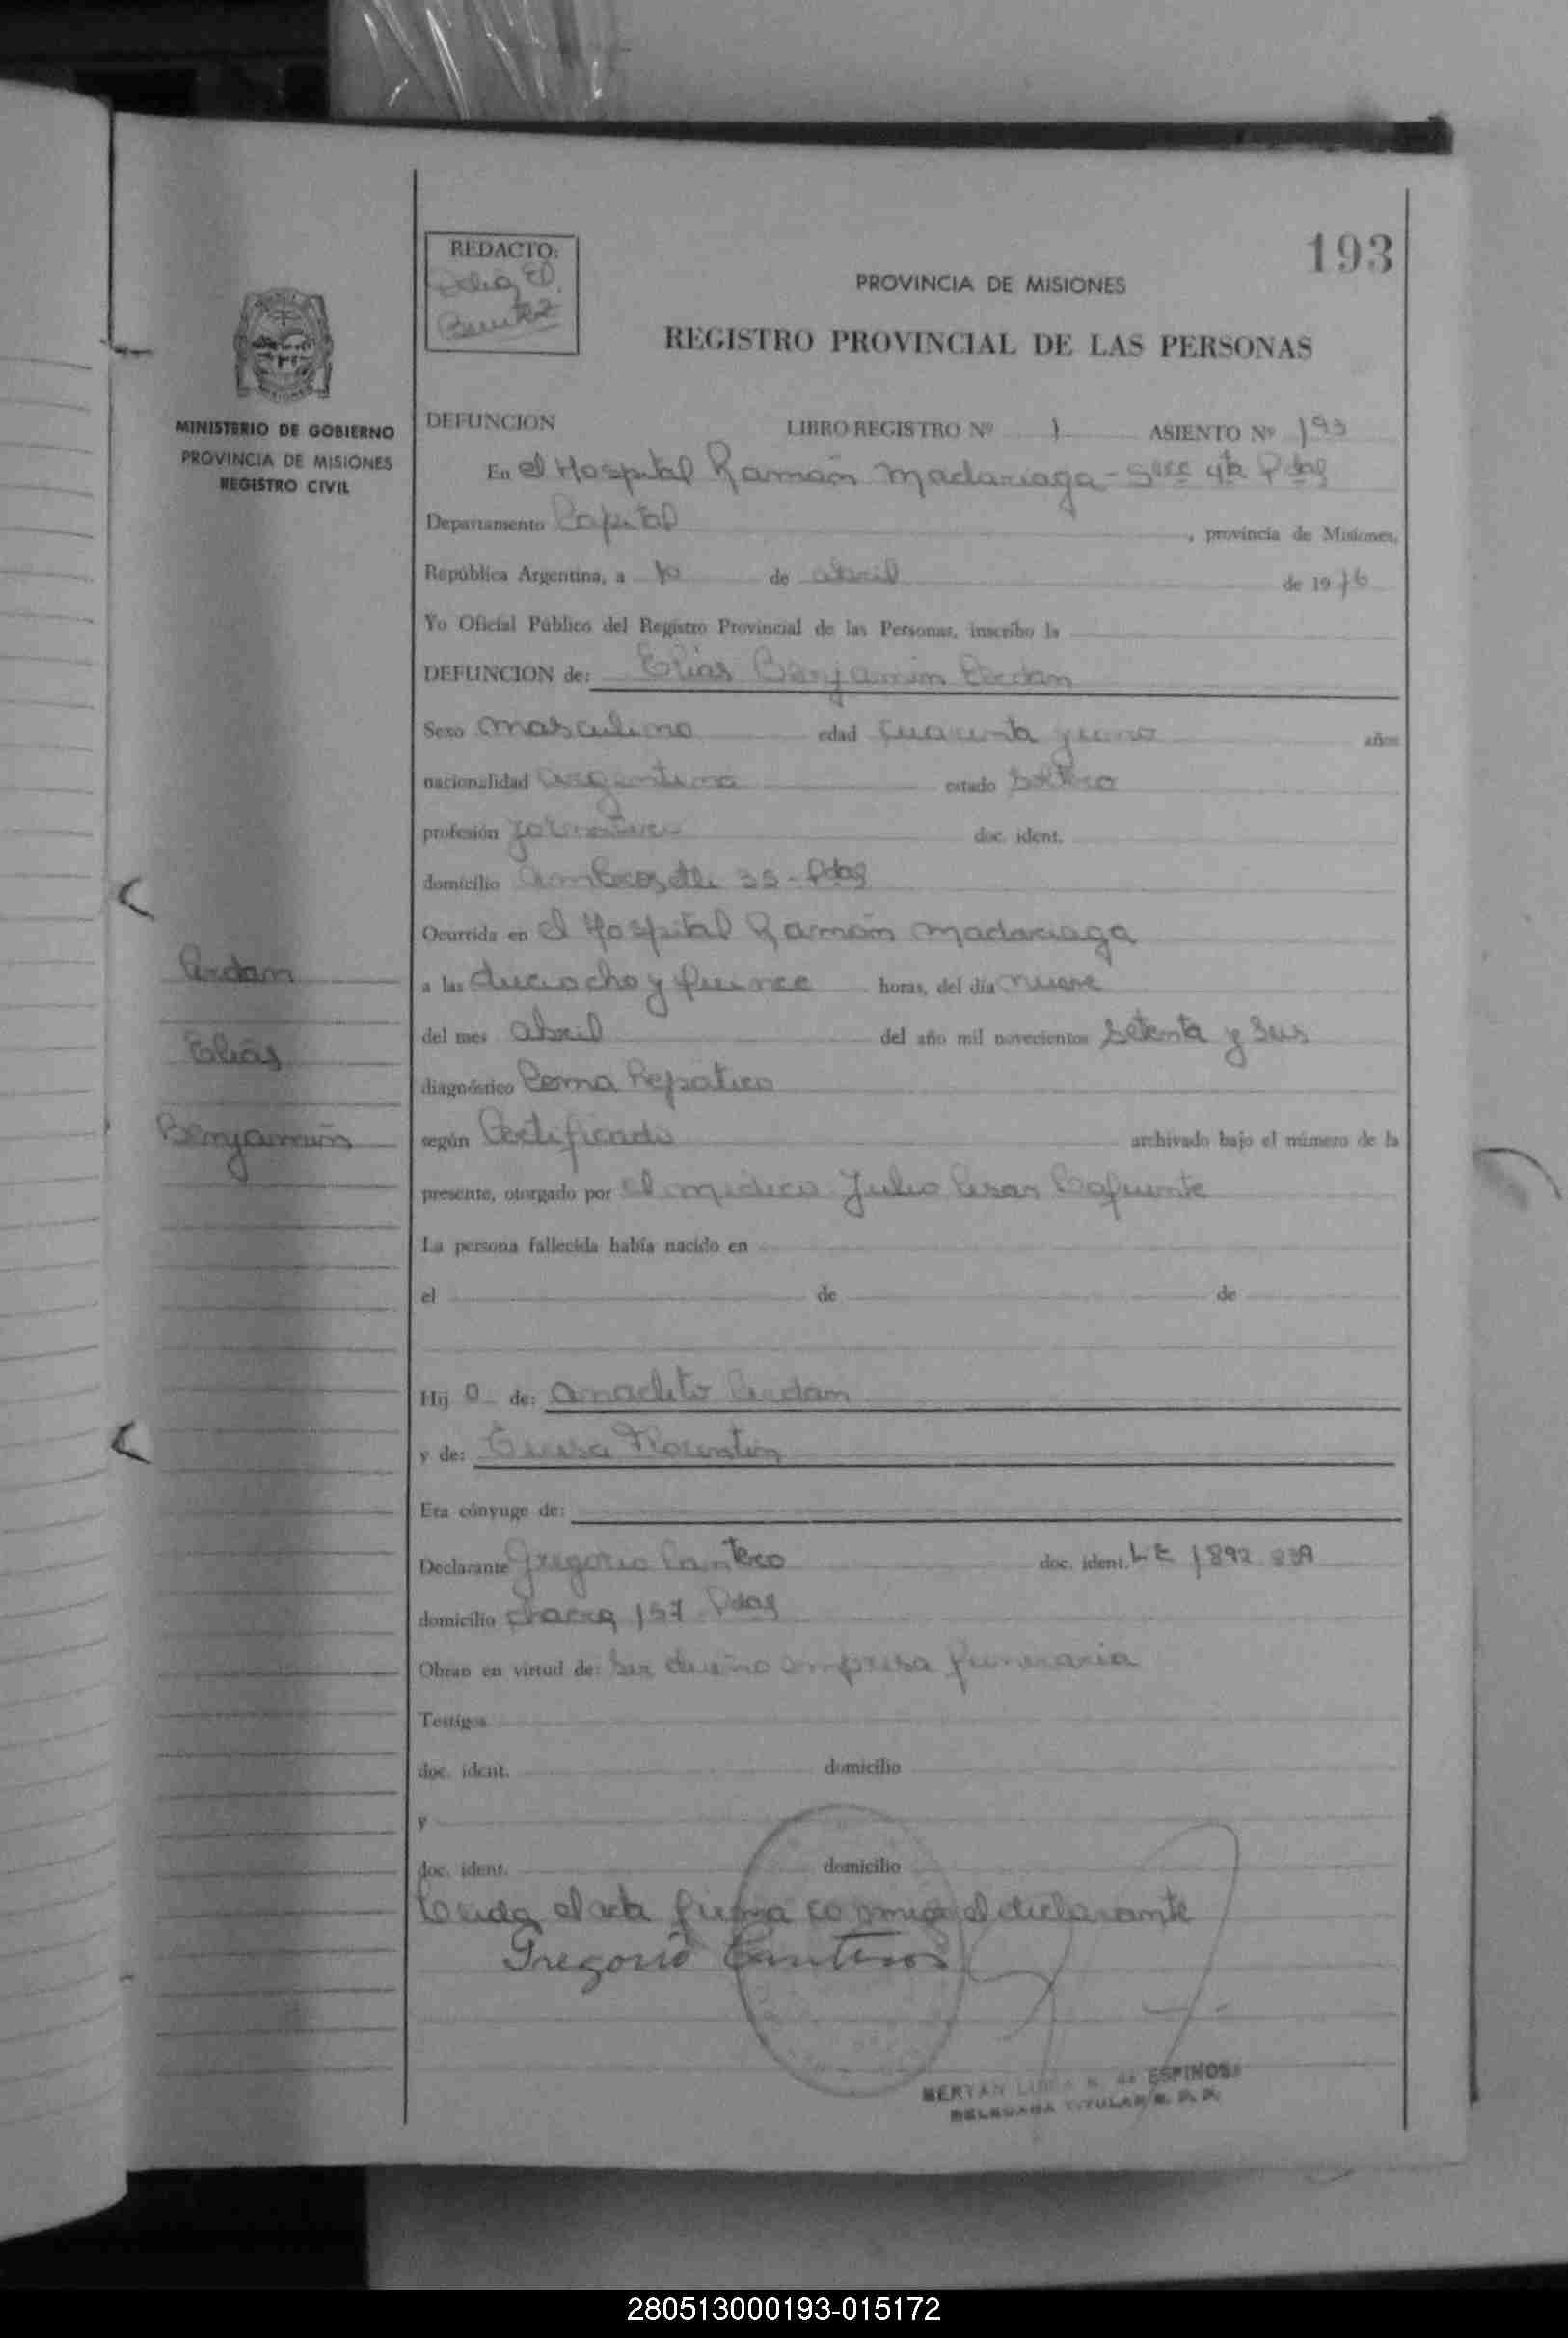 193
REDACTO:
Benitez
PROVINCIA DE MISIONES
REGISTRO PROVINCIAL DE LAS PERSONAS
MINISTERIO DE GOBIERNO
PROVINCIA DE MISIONES
REGISTRO CIVIL
DEFUNCION LIBRO REGISTRO Nº 1 ASIENTO Nº 193
En el Hospital Ramón Madariaga - Secc 4ta Pdas
Departamento Capital, provincia de Misiones,
República Argentina, a 10 de abril de 1976
Yo Oficial Público del Registro Provincial de las Personas, inscribo la
DEFUNCION de: Elias Benjamin
Sexo masculino edad cuarenta y uno años
nacionalidad argentina estado soltero
profesión jornalero doc. ident.
domicilio Ambrosetti 35 - Pdas
Ocurrida en el Hospital Ramón Madariaga
a las dieciocho y quince horas, del día nueve
del mes abril del año mil novecientos setenta y seis
diagnóstico Coma hepatico
según Certificado archivado bajo el número de la
presente, otorgado por el medico Julio Cesar Lafuente
La persona fallecida había nacido en
el de de
Hij o de: Anacleto
y de: Teresa Florentin
Era cónyuge de:
Declarante Gregorio Cantero doc. ident. LE 1892 839
domicilio chacra 157 Pdas
Obran en virtud de: ser dueño empresa funeraria
Testigos
doc. ident. domicilio
y
doc. ident. domicilio
Leida el acta firma conmigo el declarante
Gregorio Canteros
Elias
Benjamin
DE ESPINOSA
DELEGADA TITULAR R. P. P.
280513000193-015172